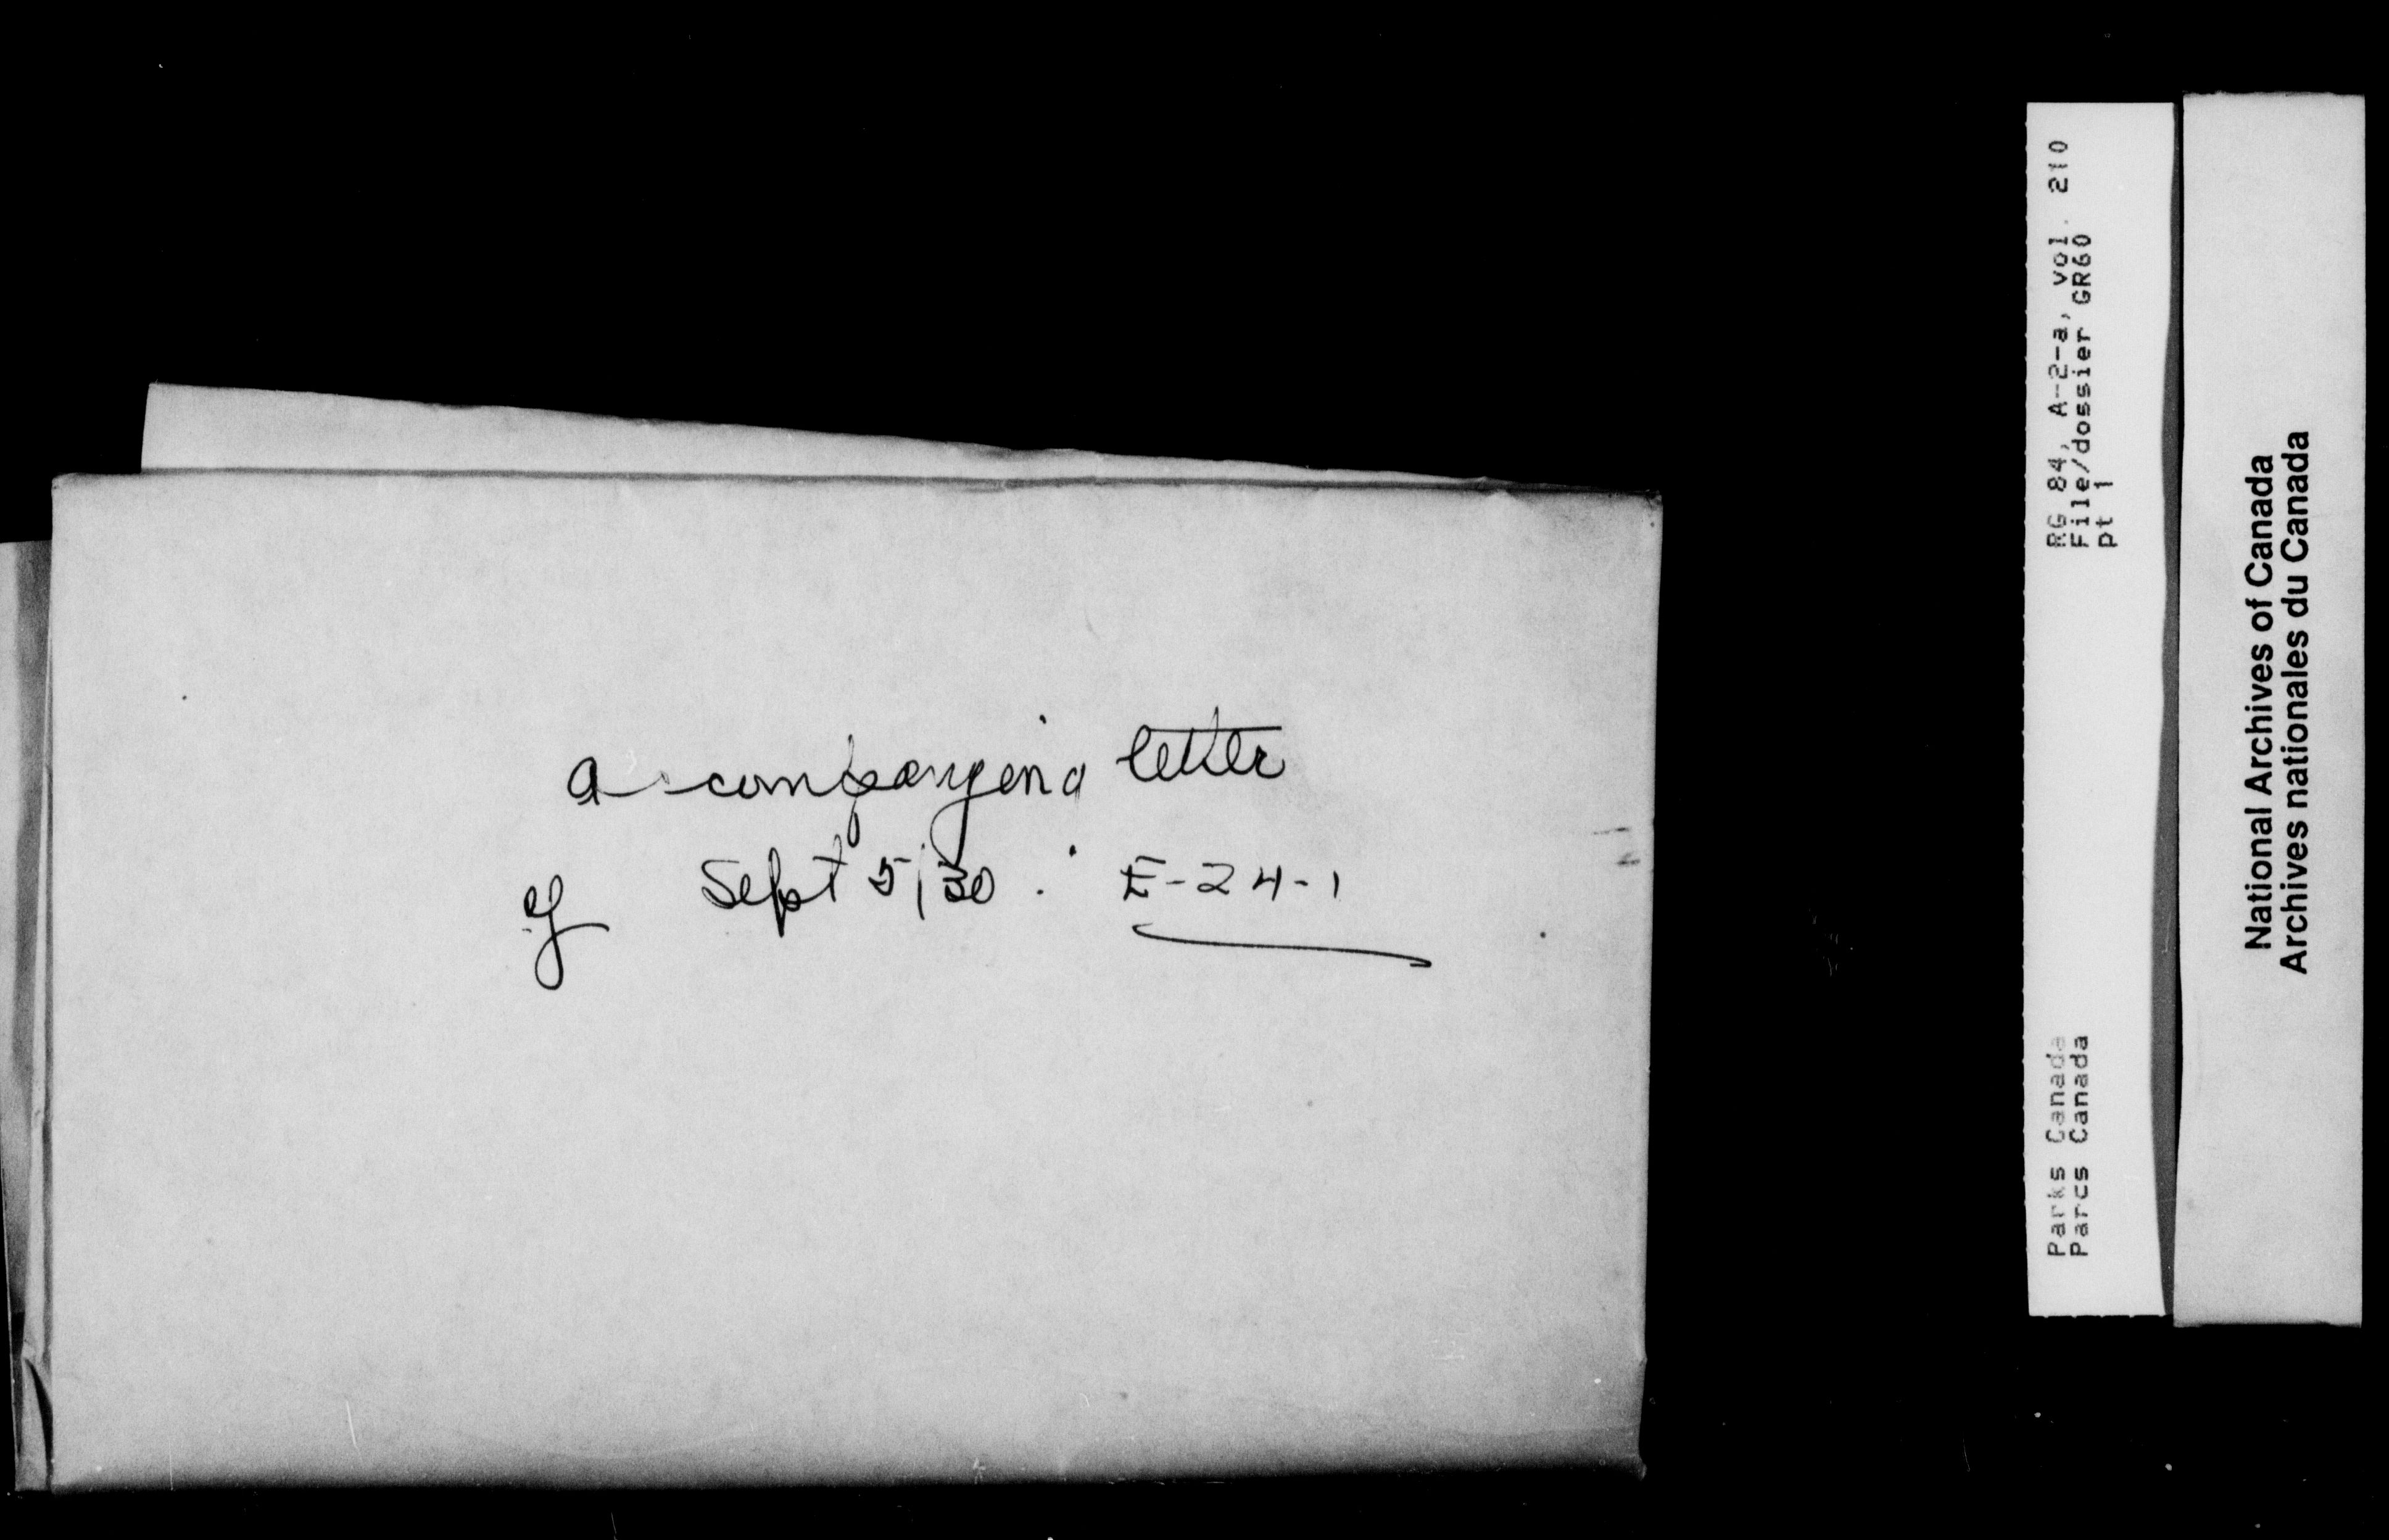 accompanying letter
of Sept 5/30. E-24-1
RG 84, A-2-a, vol. 210
File/dossier GR60
pt 1
Parks Canada
Parcs Canada
National Archives of Canada
Archives nationales du Canada